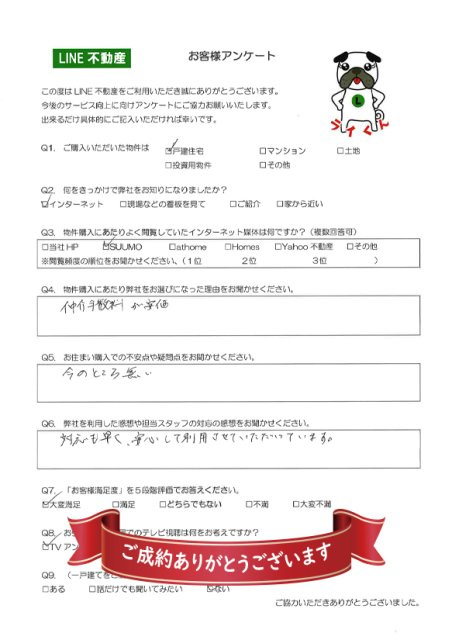 LINE 不動産
お客様アンケート
この度は LINE 不動産をご利用いただき誠にありがとうございます。
今後のサービス向上に向けアンケートにご協力お願いいたします。
出来るだけ具体的にご記入いただければ幸いです。
L
ライくん
Q1. ご購入いただいた物件は ☑戸建住宅 □マンション □土地
□投資用物件 □その他
Q2. 何をきっかけで弊社をお知りになりましたか?
☑インターネット □現場などの看板を見て □ご紹介 □家から近い
Q3. 物件購入にあたりよく閲覧していたインターネット媒体は何ですか?(複数回答可)
□当社 HP ☑SUUMO □athome □Homes □Yahoo 不動産 □その他
※閲覧頻度の順位をお聞かせください、(1位 2位 3位 )
Q4. 物件購入にあたり弊社をお選びになった理由をお聞かせください。
仲介手数料が安価
Q5. お住まい購入での不安点や疑問点をお聞かせください。
今のところ無い
Q6. 弊社を利用した感想や担当スタッフの対応の感想をお聞かせください。
対応も早く、安心して利用させていただいています。
Q7. 「お客様満足度」を5段階評価でお答えください。
☑大変満足 □満足 □どちらでもない □不満 □大変不満
Q8. お でのテレビ視聴は何をお考えですか?
☑TV アン
ご成約ありがとうございます
Q9. (一戸建てをご
□ある □話だけでも聞いてみたい ☑ない
ご協力いただきありがとうございました。